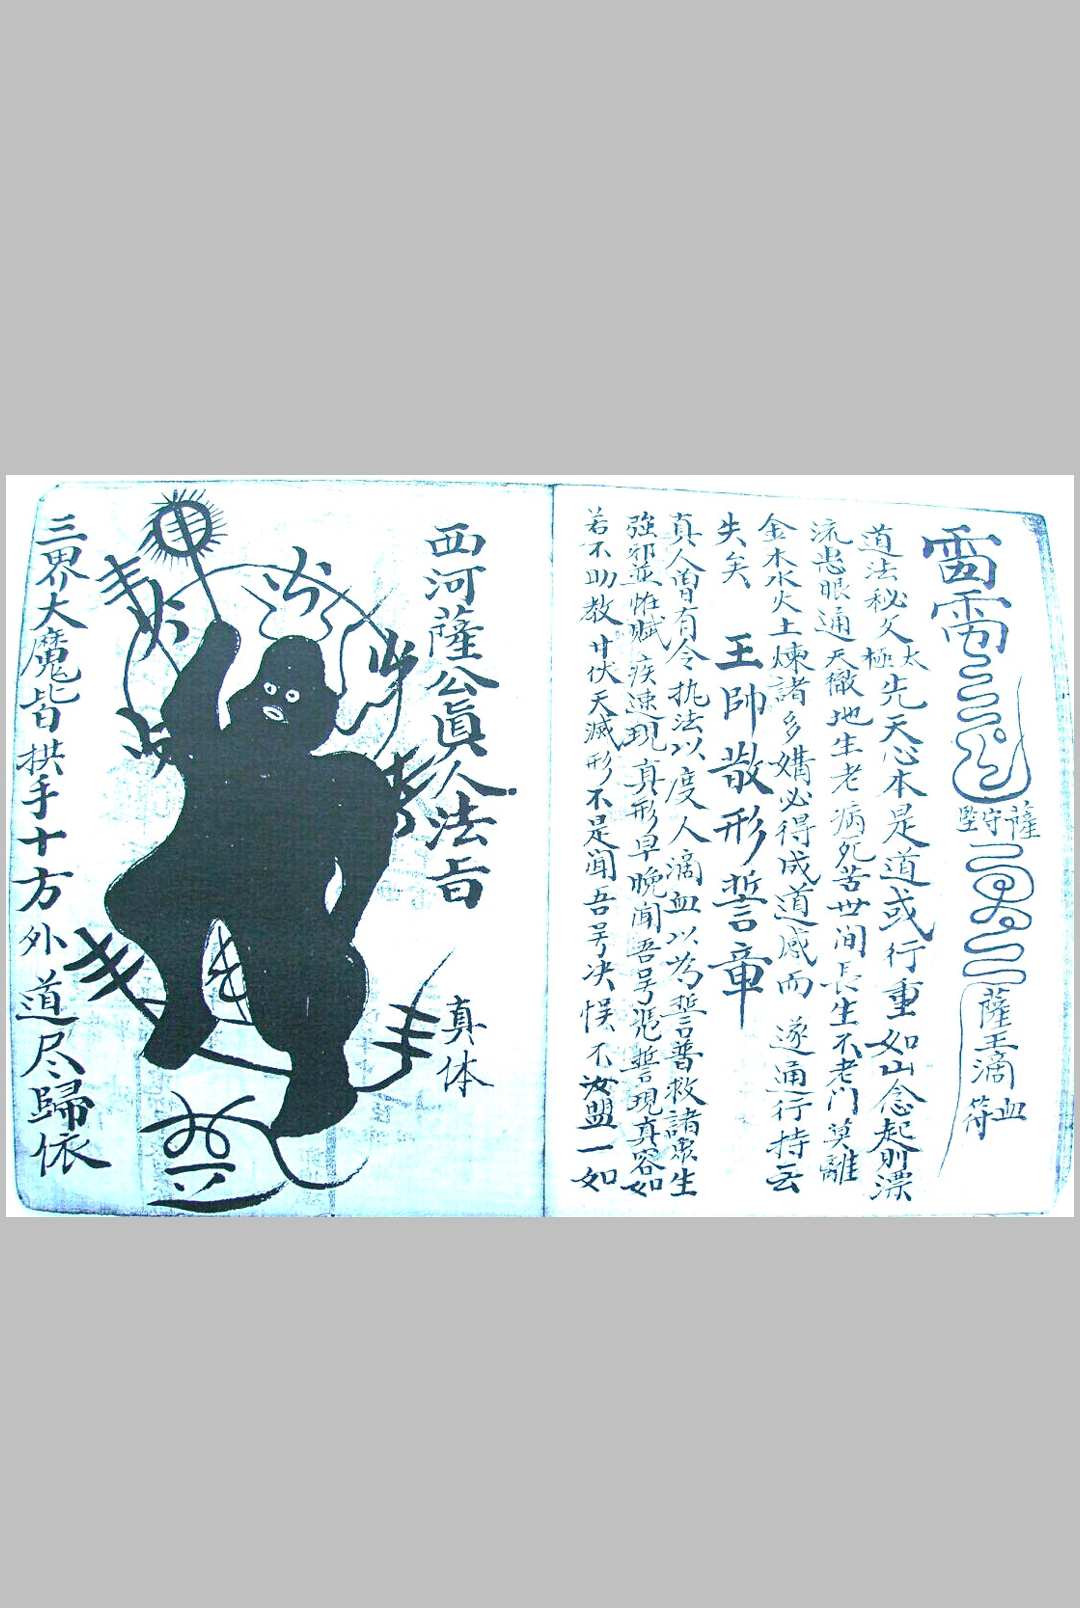 薩守堅
薩王滴血符
道法秘文太極先天心本是道或行重如山念起則漂
流患眼通天徹地生老病死苦世間長生不老門莫離
金木水火土煉諸多媾必得成道感而遂通行持去
失矣
王帥散形誓章
真人曾有令执法以度人滴血以为誓普救諸衆生
強邪並惟賊疾速現真形早晚闻吾号凭誓現真容如
若不助教廿伏天滅形不是闻吾号决悮不汝盟一如
西河薩公眞人法旨
真体
三界大魔皆拱手十方外道尽歸依